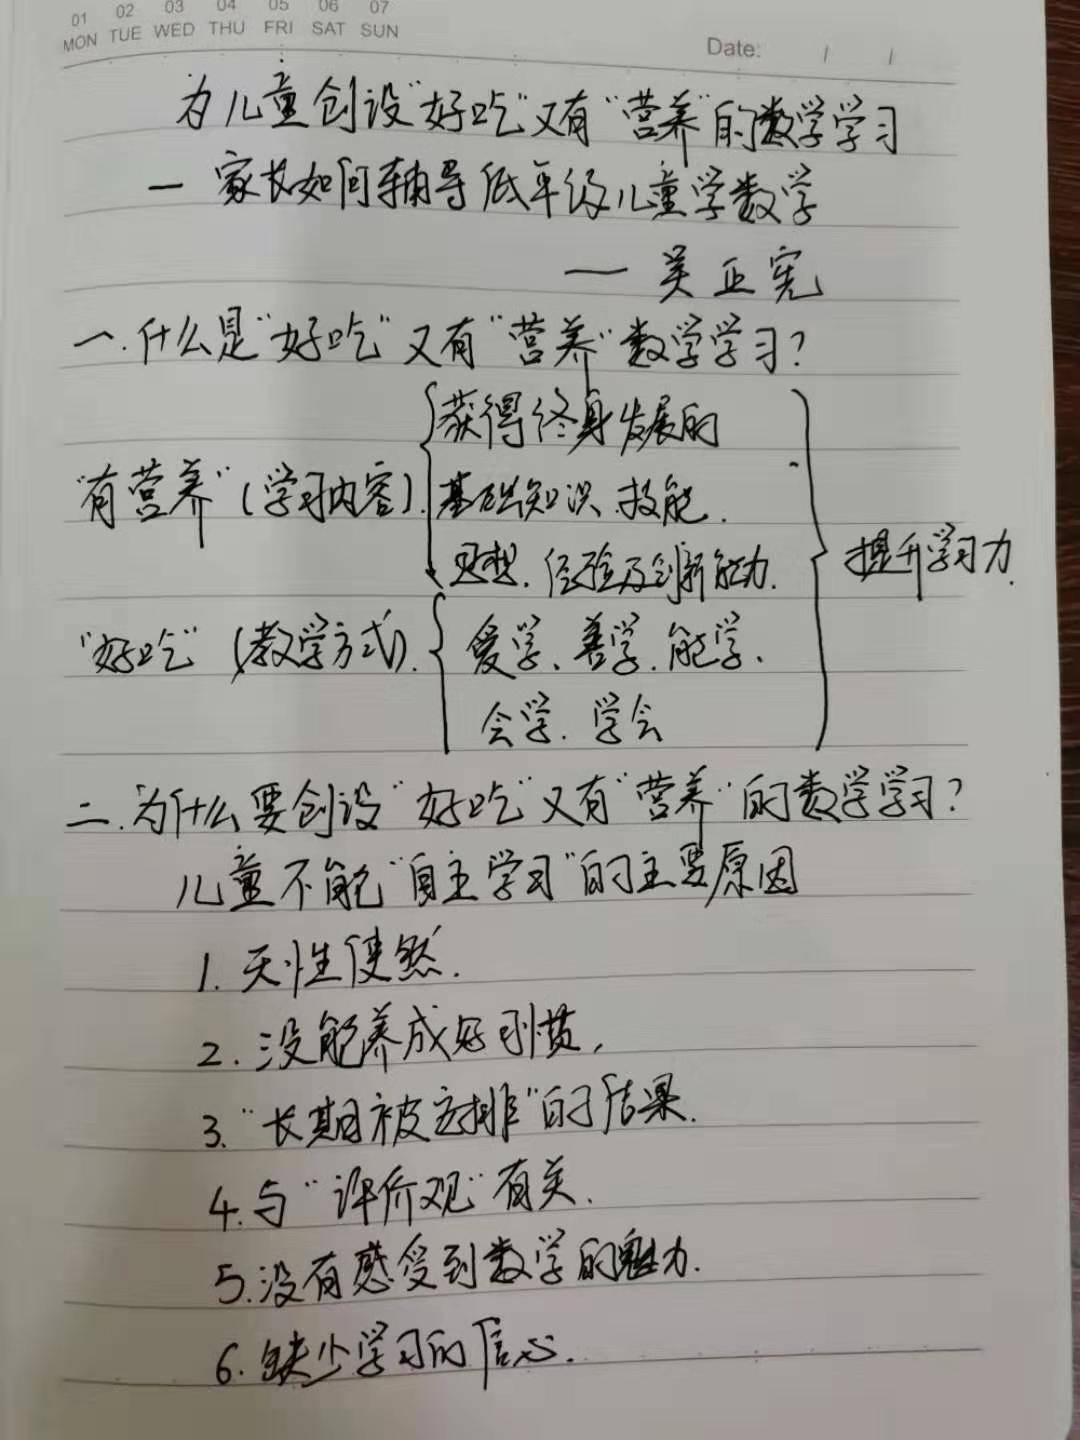 01 02 03 04 05 06 07
MON TUE WED THU FRI SAT SUN
Date: / /
为儿童创设"好吃"又有"营养"的数学学习
— 家长如何辅导低年级儿童学数学
—— 吴正宪
一.什么是"好吃"又有"营养"数学学习?
获得终身发展的
"有营养"(学习内容).基础知识、技能.
思想、经验及创新能力.
提升学习力.
"好吃"(教学方式).爱学、善学、能学、
会学、学会
二.为什么要创设"好吃"又有"营养"的数学学习?
儿童不能"自主学习"的主要原因
1.天性使然.
2.没能养成好习惯,
3."长期被安排"的结果.
4.与"评价观"有关.
5.没有感受到数学的魅力.
6.缺少学习的信心.